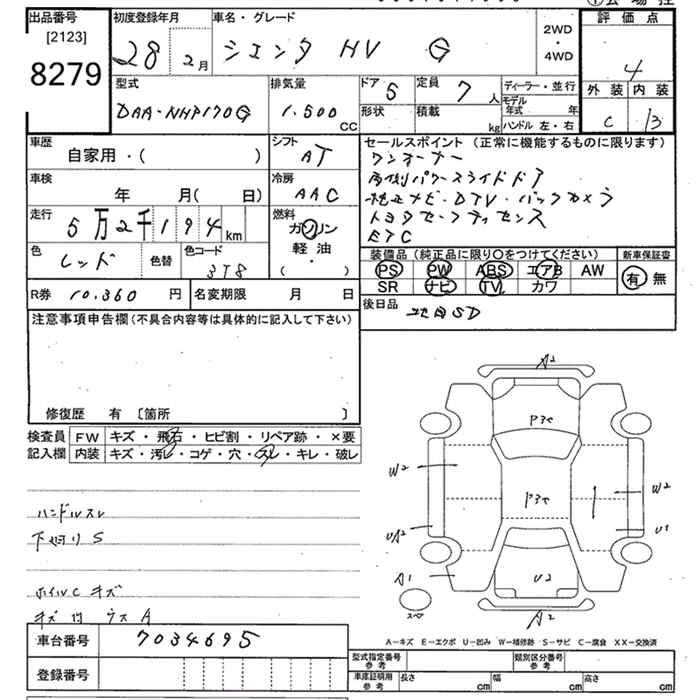 出品番号 初度登録年月 車名・グレード 評価点
[2123]
8279
28 2月 シエンタ HV G 2WD・4WD 4
型式 排気量 ドア 5 定員 7人 ディーラー・並行 外装 内装
DAA-NHP170G 1.500 CC 形状 積載 kg モデル年式 年 C B
ハンドル 左・右
車歴 シフト セールスポイント (正常に機能するものに限ります)
自家用・( ) AT ワンオーナー
車検 冷房 両側パワースライドドア
年 月( 日) AAC 純正ナビ・DTV・バックカメラ
走行 燃料 トヨタセーフティセンス
5万2千194km ガソリン ETC
軽油
・
( )
色 レッド 色替 色コード 3T8
装備品 (純正品に限り○をつけてください) 新車保証書
PS PW ABS エアB AW 有 無
SR ナビ TV カワ
R券 10.360 円 名変期限 月 日 後日品
注意事項申告欄(不具合内容等は具体的に記入して下さい)
修復歴 有 [箇所 ]
検査員 FW キズ・飛石・ヒビ割・リペア跡・×要
記入欄 内装 キズ・汚レ・コゲ・穴・スレ・キレ・破レ
A2
P3
W2
P3
W2
U1
A1
U2
A2
スペア
ハンドルスレ
下廻り S
ホイルC キズ
車台番号 7034695
登録番号
A-キズ E-エクボ U-凹み W-補修跡 S-サビ C-腐食 XX-交換済
型式指定番号 参考 類別区分番号 参考
車庫証明用 参考 長さ cm 幅 cm 高さ cm